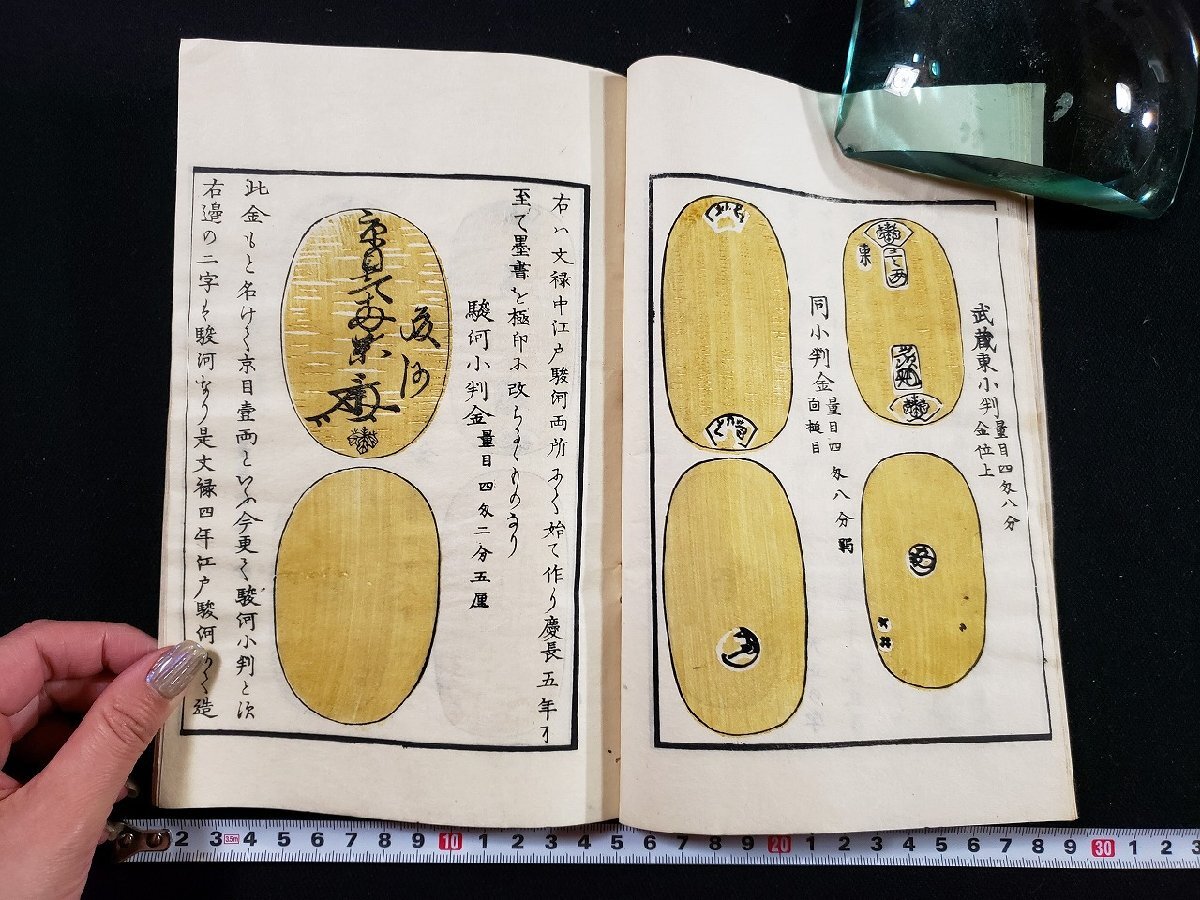 武蔵東小判 量目四匁八分
金位上
東
同小判金 量目四匁八分弱
向槌目
右ハ文禄中江戸駿河両所にて始て作り慶長五年才
至て墨書を極印に改らるゝものなり
駿河小判金 量目四匁二分五厘
京目壹両
駿河
此金もと名けて京目壹両といふ今更て駿河小判と
右邉の二字は駿河なり是文禄四年江戸駿河にて造
2 3 3.5m 4 5 6 7 8 9 10 1 2 3 4 5 6 7 8 9 20 1 2 3 4 5 6 7 8 9 30 1 2 3